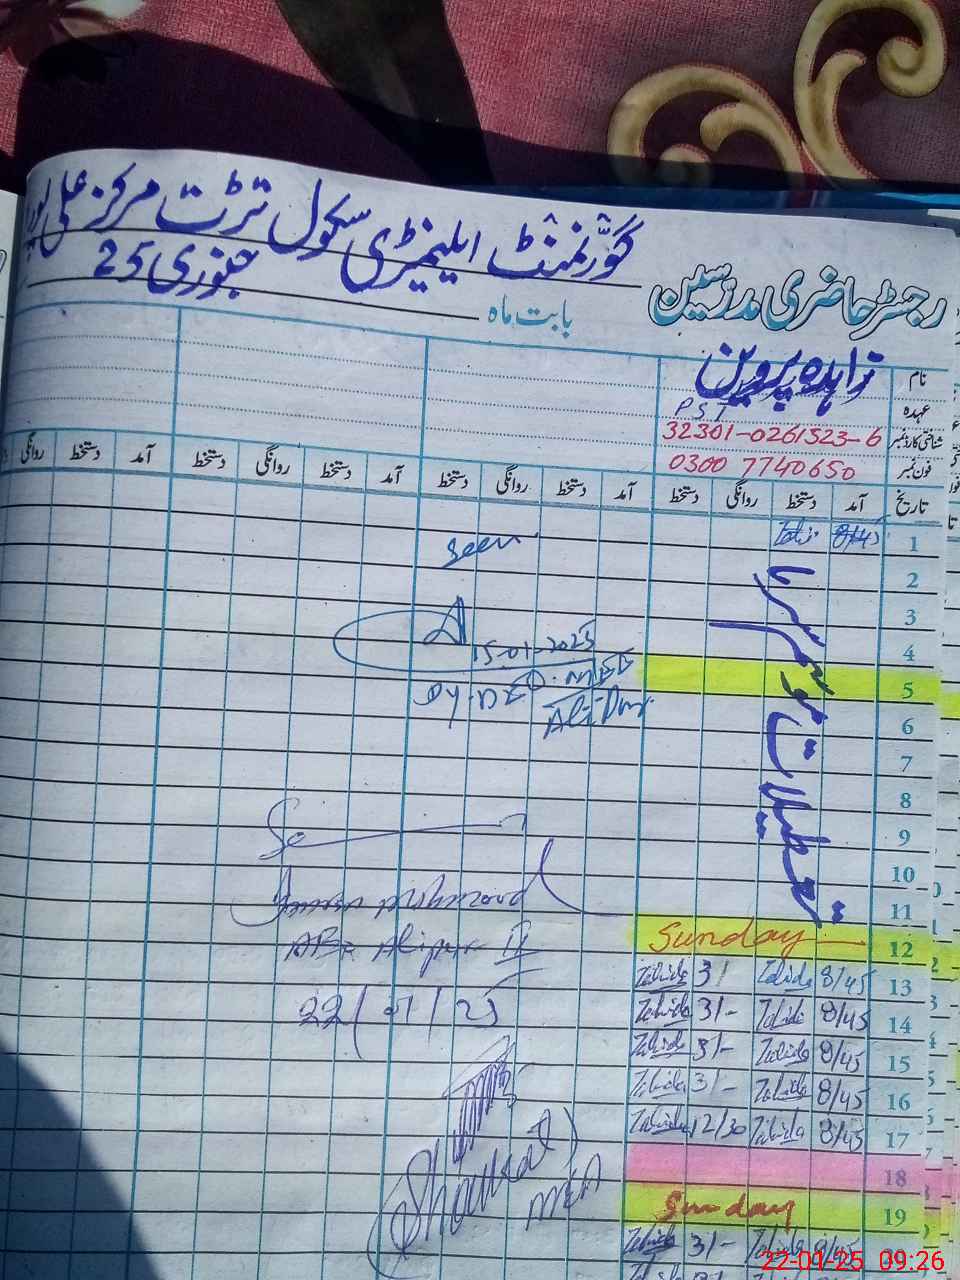 گورنمنٹ ایلیمنٹری سکول ترٹ مرکز علی پور
رجسٹر حاضری مدرسین
بابت ماہ جنوری 25
نام زاہدہ پروین
عہدہ PST
شناختی کارڈ نمبر 32301-0261523-6
فون نمبر 0300 7740650
تاریخ آمد دستخط روانگی دستخط آمد دستخط روانگی دستخط آمد دستخط روانگی دستخط آمد دستخط روانگی
1 8/45
seen
2
3
تعطیلات موسم سرما
4
15-01-2025
5
Dy. DEO
6
7
8
9
10
11
12 Sunday
13 8/45 Zahida 3/- Zahida
14 8/45 Zahida 3/- Zahida
22/01/25
15 8/45 Zahida 3/- Zahida
16 8/45 Zahida 3/- Zahida
17 8/45 Zahida 12/30 Zahida
18
Shoukat
MEA
19 Sunday
20 8/45 Zahida 3/- Zahida
22-01-25 09:26